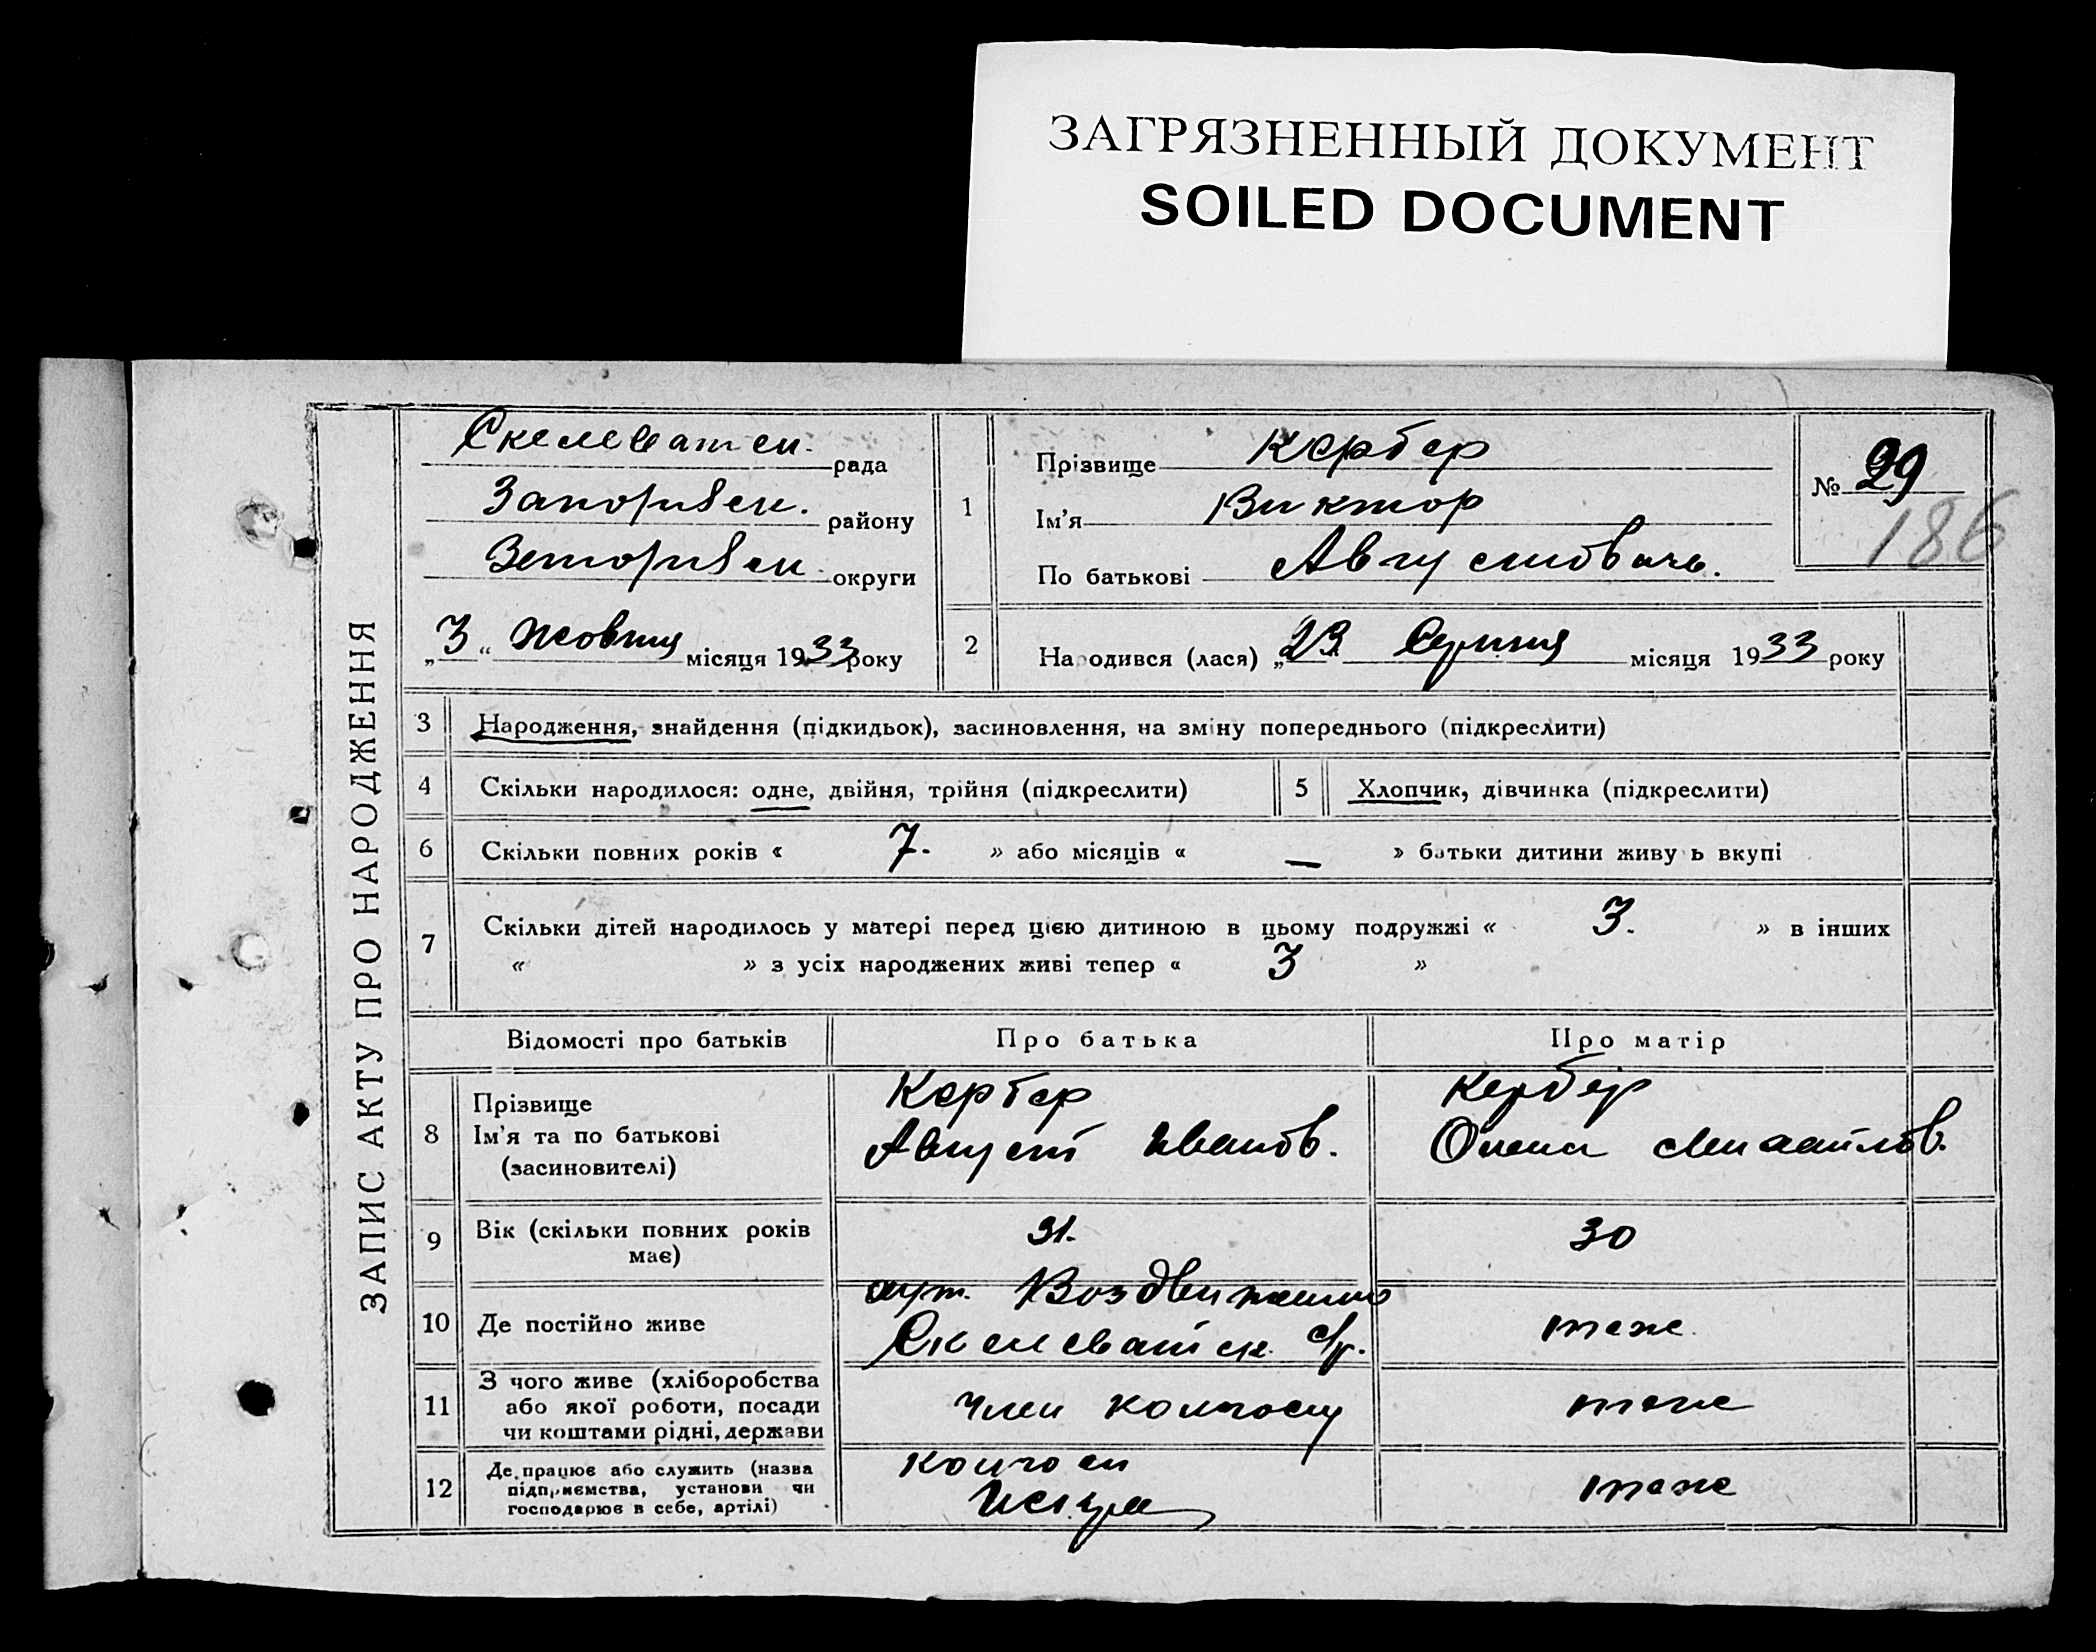 ЗАГРЯЗНЕННЫЙ ДОКУМЕНТ
SOILED DOCUMENT
ЗАПИС АКТУ ПРО НАРОДЖЕННЯ
Скелеватск. рада
Запоризск. району
округи
„3“ Жовтня місяця 1933 року
1
Прізвище Кербер
Ім'я Виктор
По батькові Августовичь.
№ 29
186
2
Народився (лася) „23“ Серпня місяця 1933 року
3 Народження, знайдення (підкидьок), засиновлення, на зміну попереднього (підкреслити)
4 Скільки народилося: одне, двійня, трійня (підкреслити)
5 Хлопчик, дівчинка (підкреслити)
6 Скільки повних років « 7. » або місяців « — » батьки дитини живуть вкупі
7 Скільки дітей народилось у матері перед цією дитиною в цьому подружжі « 3. » в інших
« » з усіх народжених живі тепер « 3 »
Відомості про батьків
Про батька
Про матір
8
Прізвище
Ім'я та по батькові
(засиновителі)
Кербер
Август Иванов.
Кербер
Олена Михайлов.
9
Вік (скільки повних років
має)
31.
30
10 Де постійно живе
хут.
Скелеватск. с/р.
теже.
11
З чого живе (хліборобства
або якої роботи, посади
чи коштами рідні, держави
член колгоспу
теже
12
Де працює або служить (назва
підприємства, установи чи
господарює в себе, артілі)
колгосп
Искра
теже